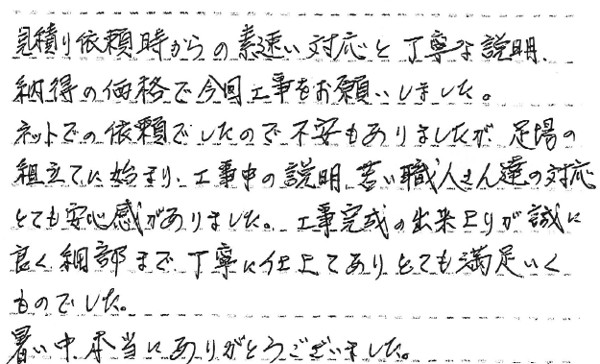 見積り依頼時からの素速い対応と丁寧な説明、
納得の価格で今回工事をお願いしました。
ネットでの依頼でしたので不安もありましたが、足場の
組立てに始まり、工事中の説明、若い職人さん達の対応
とても安心感がありました。工事完成の出来上りが誠に
良く細部まで丁寧に仕上てありとても満足いく
ものでした。
暑い中、本当にありがとうございました。